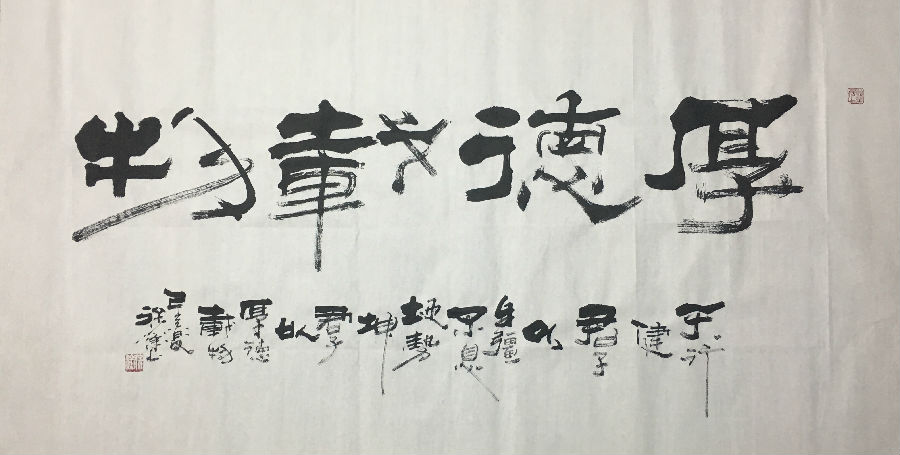 厚德載物
天行健君子以自彊不息地勢坤君子以厚德載物
己亥夏